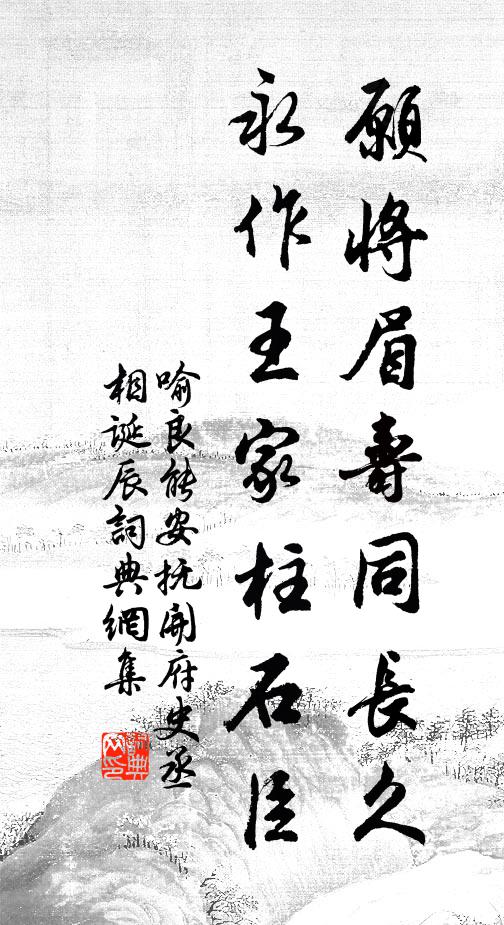 願將眉壽同長久
永作王家柱石臣
喻良能安抚開府史丞
相誕辰詞典網集